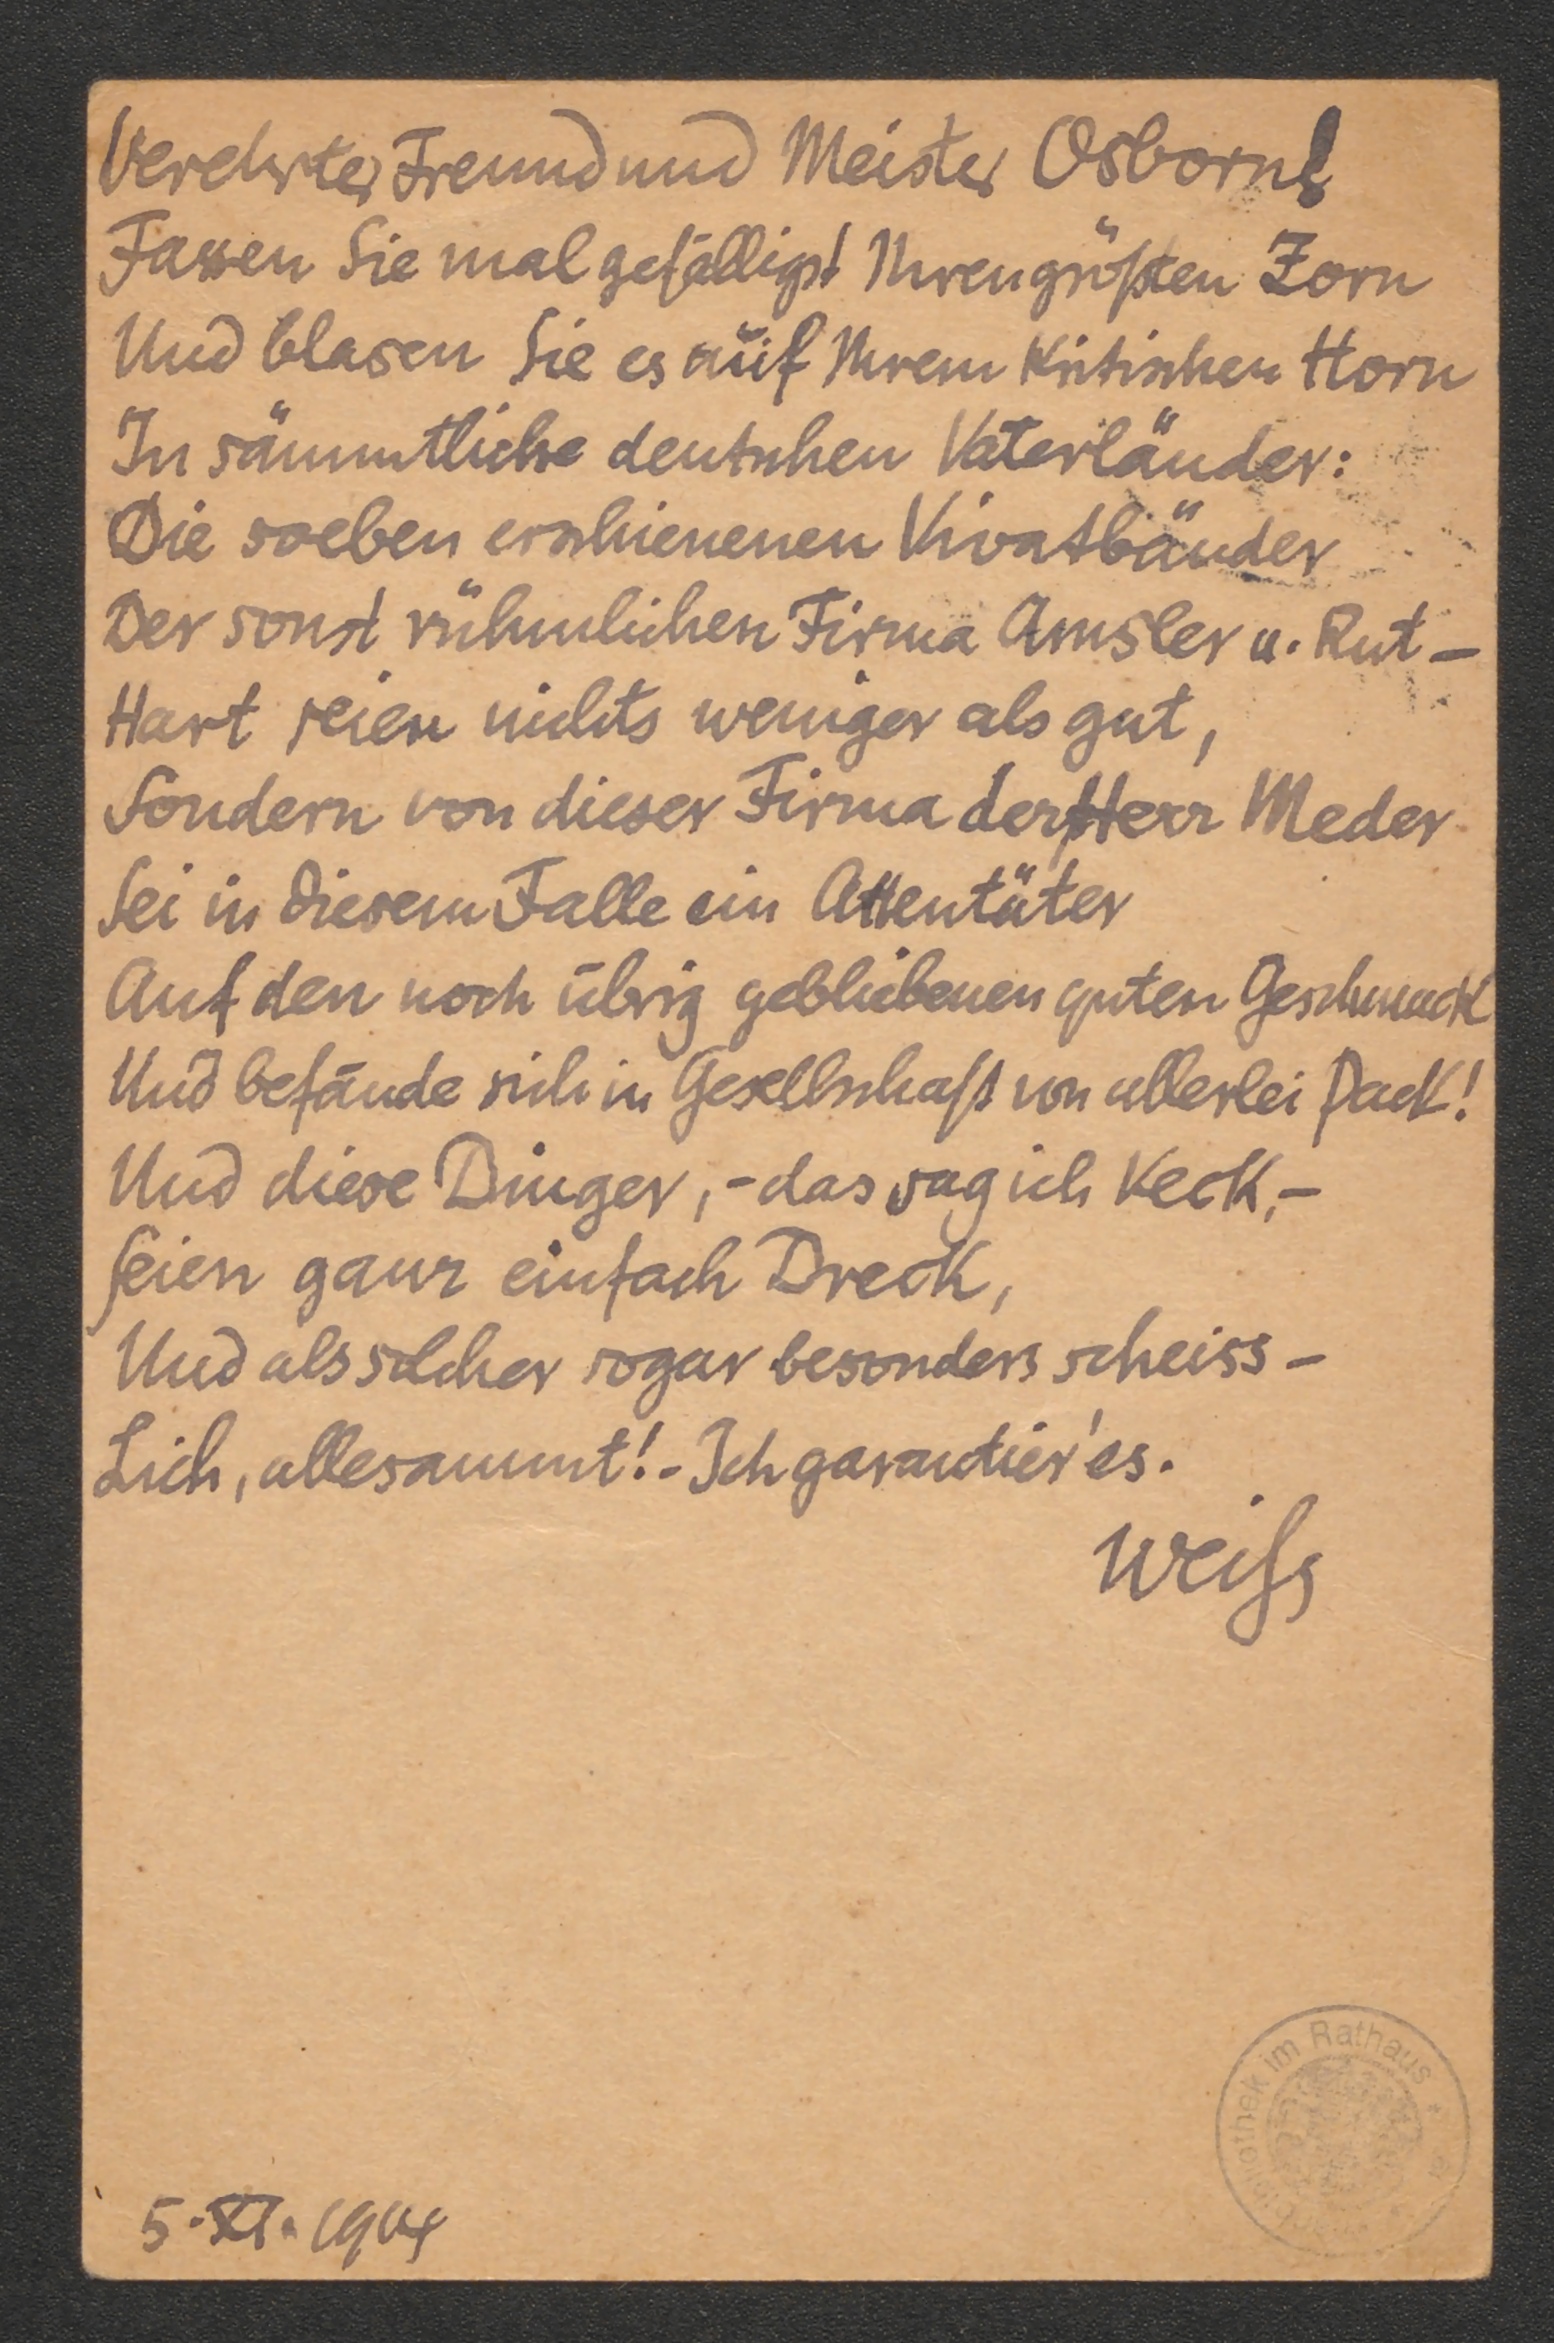 Verehrter Freund und Meister Osborn!
Fassen Sie mal gefälligst Ihren größten Zorn
Und blasen Sie es auf Ihrem kritischen Horn
In sämmtliche deutschen Vaterländer:
Die soeben erschienenen Vivatbänder
Der sonst rühmlichen Firma Amsler u. Rut-
Hart seien nichts weniger als gut,
Sondern von dieser Firma der Herr Meder
Sei in diesem Falle ein Attentäter
Auf den noch übrig gebliebenen guten Geschmack
Und befände sich in Gesellschaft von allerlei Pack!
Und diese Dinger, - das sag ich keck, -
Seien ganz einfach Dreck,
Und als solcher sogar besonders scheiss-
Lich, allesammt! - Ich garantier' es.
Weiß
5. XI. 1914
im Rathaus